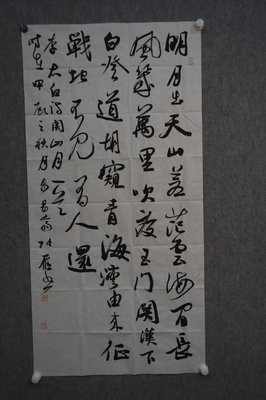 明月出天山蒼茫雲海間長
風幾萬里吹度玉門關漢下
白登道胡窺青海灣由來征
戰地不見有人還
李太白詩關山月
時在甲辰之秋月